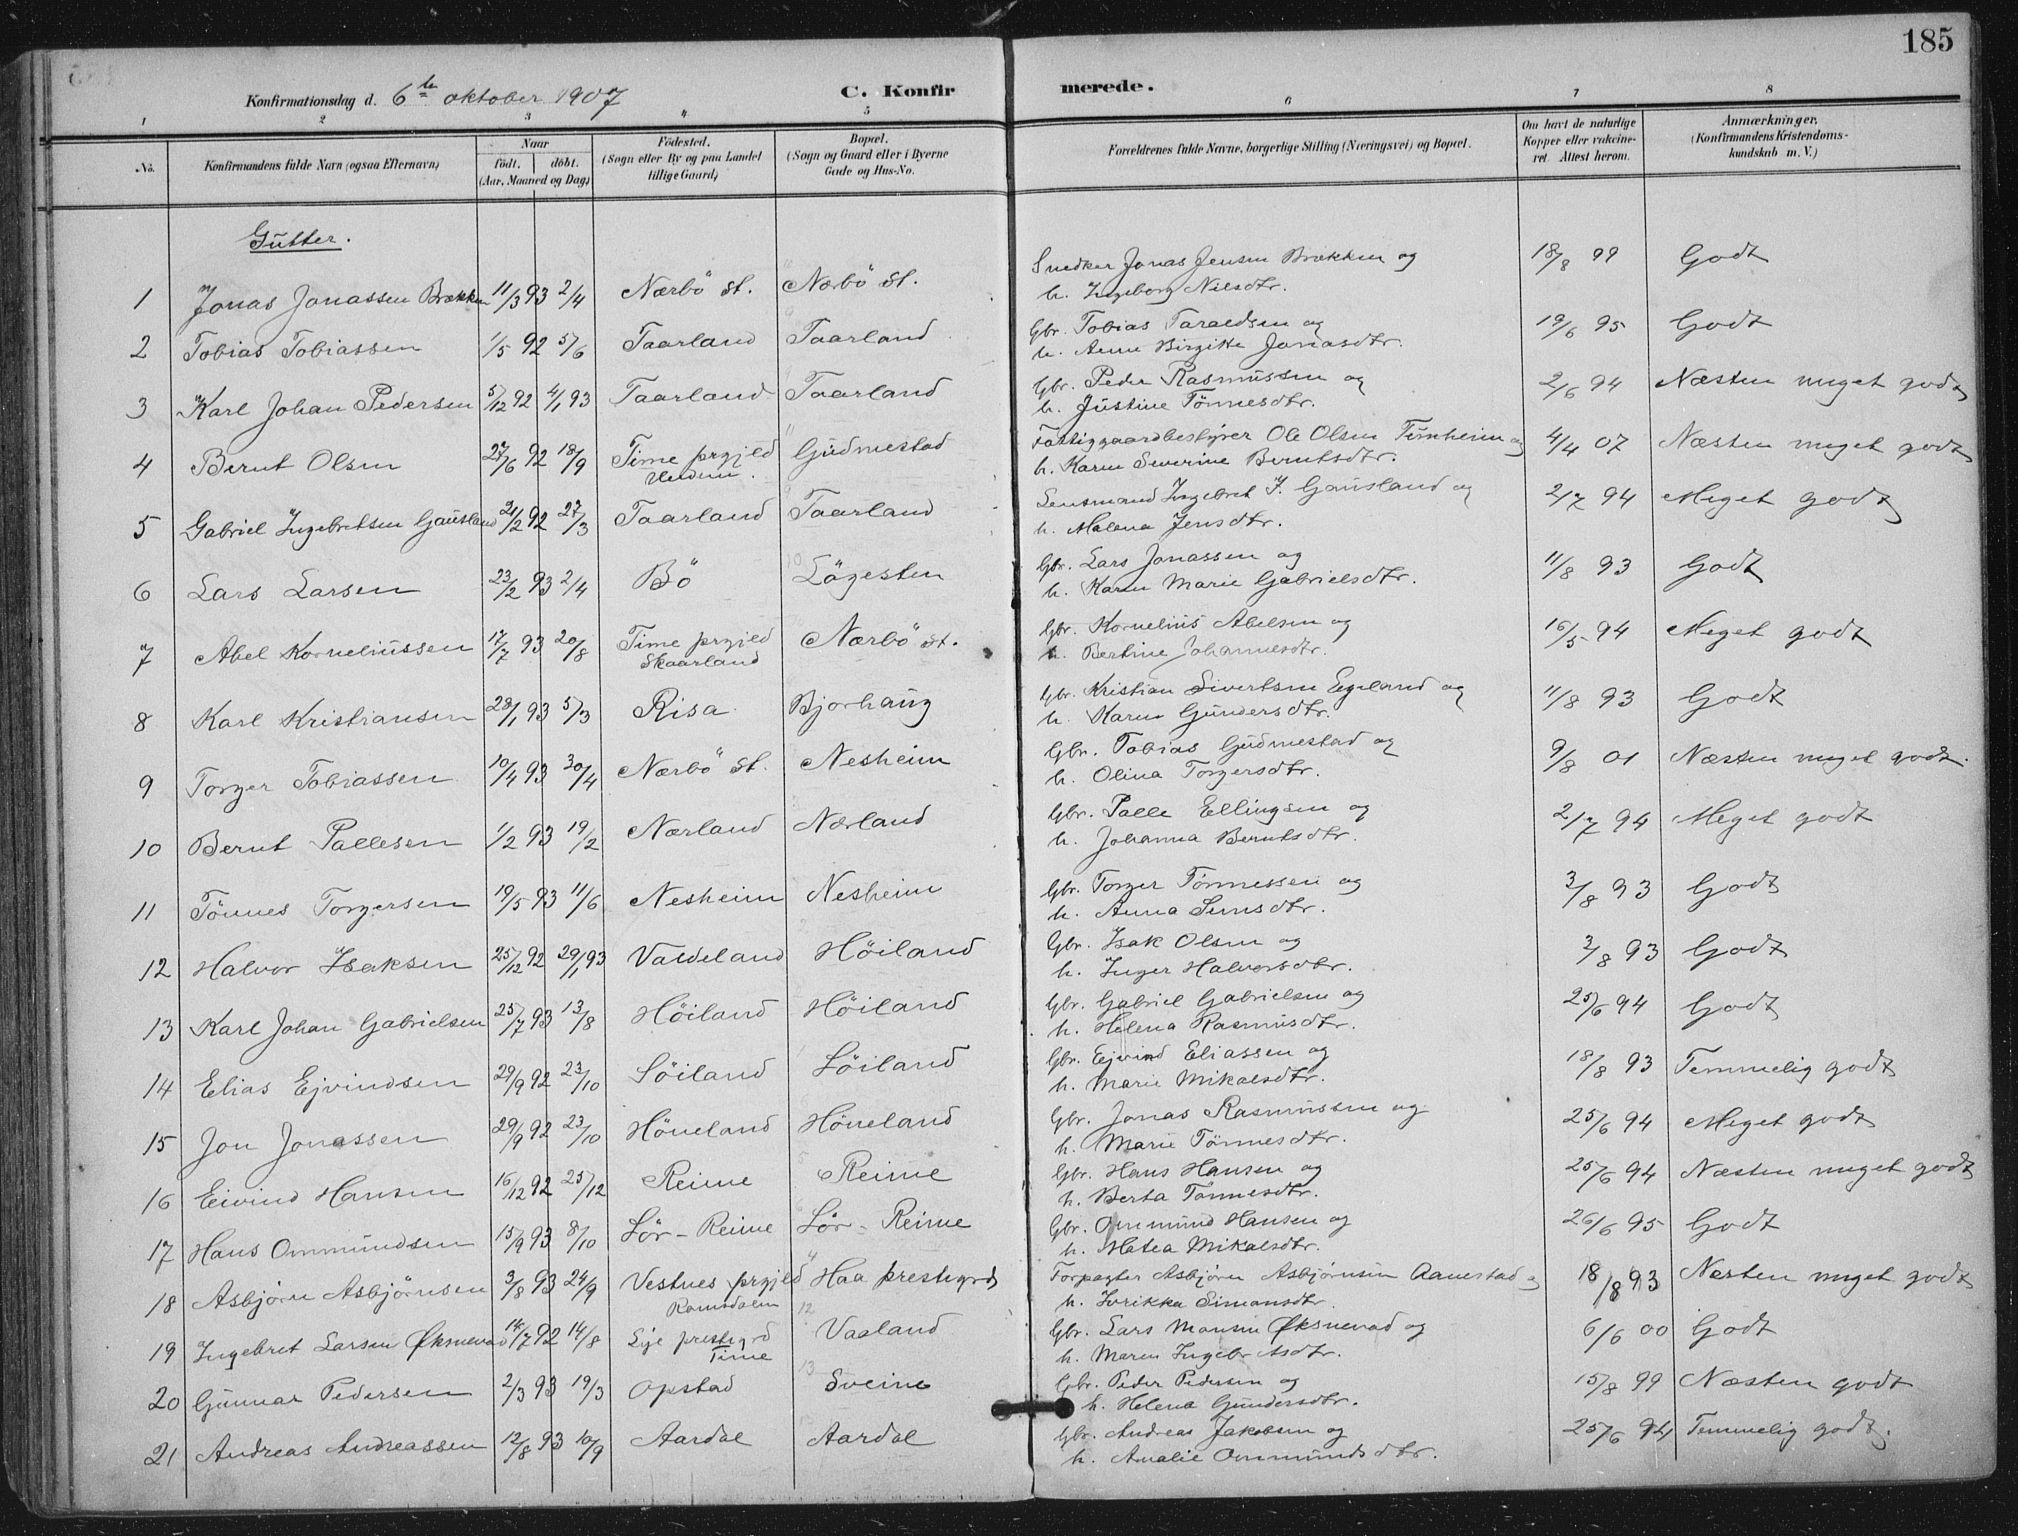 185
Konfirmationsdag d. 6te oktober 1907 C. Konfirmerede.
1 2 3 4 5 6 7 8
No. Konfirmandens fulde Navn (ogsaa Efternavn) Naar født. døbt. (Aar, Maaned og Dag) Fødested. (Sogn eller By og paa Landet tillige Gaard) Bopæl. (Sogn og Gaard eller i Byerne Gade og Hus-No. Forældrenes fulde Navne, borgerlige Stilling (Næringsvei) og Bopæl. Om havt de naturlige Kopper eller vakcineret. Attest herom. Anmærkninger. (Konfirmandens Kristendomskundskab m. V.)
Gutter.
1 Jonas Jonassen Brækken 11/3 93 2/4 Nærbö st. Nærbö st. Snedker Jonas Jensen Brækken og 18/8 99 Godt
h. Ingeborg Nilsdtr.
2 Tobias Tobiassen 1/5 92 5/6 Taarland Taarland Gbr. Tobias Taraldsen og 19/6 95 Godt
h. Anne Birgitte Jonasdtr.
3 Karl Johan Pedersen 5/12 92 4/1 93 Taarland Taarland Gbr. Peder Rasmussen og 2/6 94 Næsten meget godt
h. Justine Tönnesdtr.
4 Bernt Olsen 27/6 92 18/9 Time prgjeld Gudmestad Fattiggaardbestyrer Ole Olsen og 4/4 07 Næsten meget godt
h. Karen Severine Berntsdtr.
5 Gabriel Ingebretsen Gausland 21/2 92 27/3 Taarland Taarland Lensmand Ingebret J. Gausland og 2/7 94 Meget godt
h. Malena Jensdtr.
6 Lars Larsen 23/2 93 2/4 Bö Lögesten Gbr. Lars Jonassen og 11/8 93 Godt
h. Karen Marie Gabrielsdtr.
7 Abel Korneliussen 17/7 93 20/8 Time prgjeld Skaarland Nærbö st. Gbr. Kornelius Abelsen og 16/5 94 Meget godt
h. Bertine Johannesdtr.
8 Karl Kristiansen 28/1 93 5/3 Risa Bjorhaug Gbr. Kristian Sivertsen Egeland og 11/8 93 Godt
h. Karen Gundersdtr.
9 Torger Tobiassen 10/4 93 30/4 Nærbö st. Nesheim Gbr. Tobias Gudmestad og 9/8 01 Næsten meget godt.
h. Olina Torgersdtr.
10 Bernt Pallesen 1/2 93 19/2 Nærland Nærland Gbr. Palle Ellingsen og 2/7 94 Meget godt
h. Johanna Berntsdtr.
11 Tönnes Torgersen 19/5 93 11/6 Nesheim Nesheim Gbr. Torger Tönnessen og 3/8 93 Godt
h. Anna
12 Halvor Isaksen 25/12 92 29/1 93 Valdeland Höiland Gbr. Isak Olsen og 3/8 93 Godt
h. Inger Halvorsdtr.
13 Karl Johan Gabrielsen 25/7 93 13/8 Höiland Höiland Gbr. Gabriel Gabrielsen og 25/6 94 Godt
h. Helena Rasmusdtr.
14 Elias Ejvindsen 29/9 92 23/10 Söiland Söiland Gbr. Ejvind Eliassen og 18/8 93 Temmelig godt
h. Marie Mikalsdtr.
15 Jon Jonassen 29/9 92 23/10 Höneland Höneland Gbr. Jonas Rasmussen og 25/6 94 Meget godt
h. Marie Tönnesdtr.
16 Eivind Hansen 16/12 92 25/12 Reime Reime Gbr. Hans Hansen og 25/6 94 Næsten meget godt
h. Berta Tönnesdtr.
17 Hans Ommundsen 15/9 93 8/10 Sör-Reime Sör-Reime Gbr. Ommund Hansen og 26/6 95 Godt
h. Matea Mikalsdtr.
18 Asbjörn Asbjörnsen 3/8 93 24/9 Vestnes prgjeld Romsdalen Haa prestegrd Forpagter Asbjørn Asbjørnsen Aanestad og 18/8 93 Næsten meget godt
h. Simonsdtr.
19 Ingebret Larsen Øksnevad 14/7 92 14/8 Lye prestegrd Time Vaaland Gbr. Lars Monsen Øksnevad og 6/6 00 Godt
h. Maren Ingebretsdtr.
20 Gunnar Pedersen 2/3 93 19/3 Opstad Sveine Gbr. Peder Pedersen og 15/8 99 Næsten godt
h. Helena Gundersdtr.
21 Andreas Andreassen 12/8 93 10/9 Aardal Aardal Gbr. Andreas Jakobsen og 25/6 94 Temmelig godt.
h. Amalie Ommundsdtr.